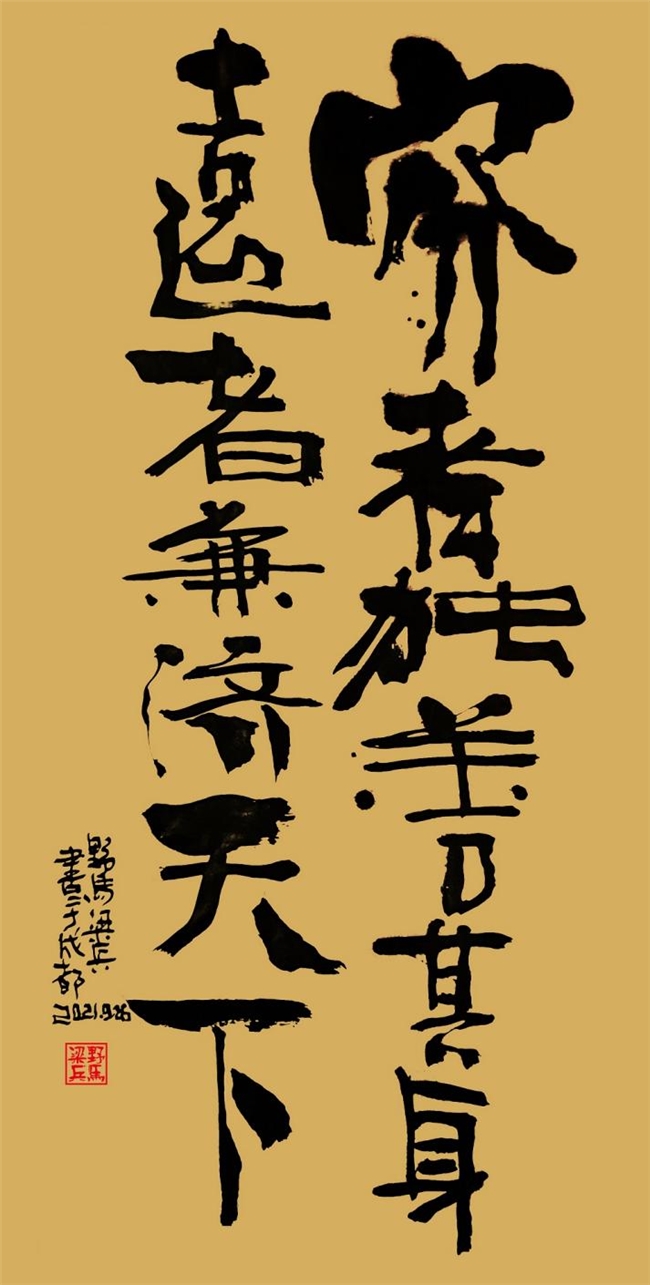 穷者独善其身
遠者兼济天下
野馬梁兵
書于成都
2021.9.26
野馬
梁兵